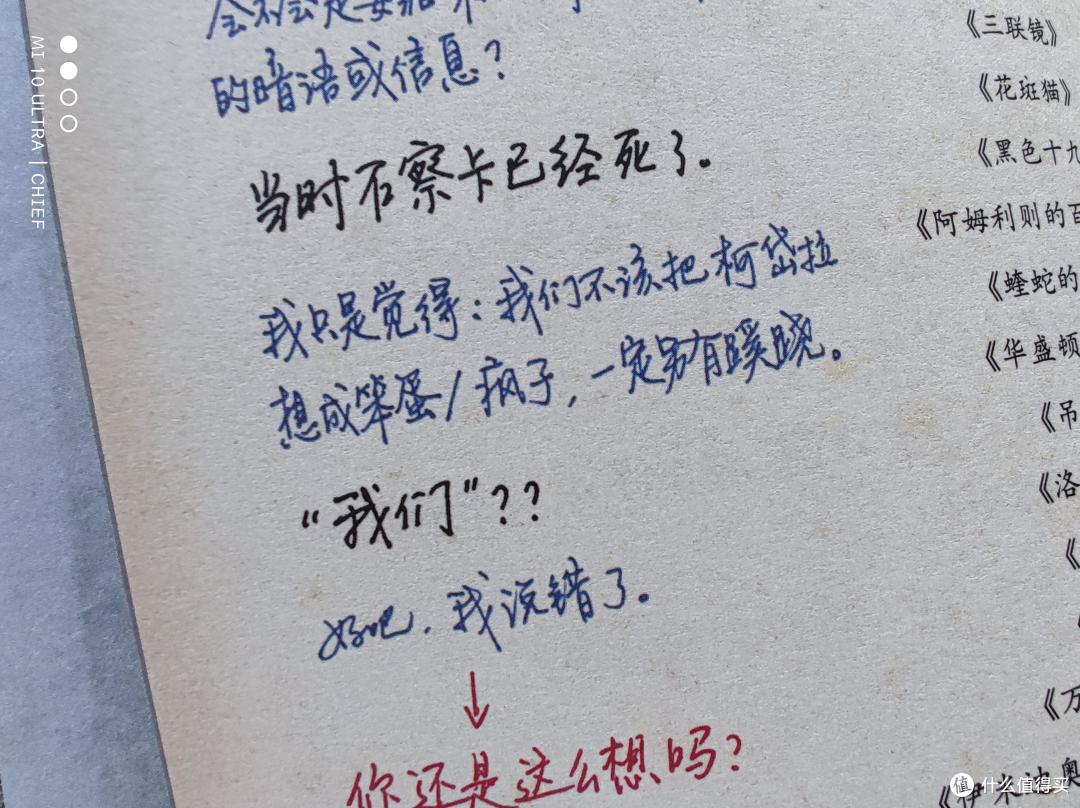 的暗语或信息？
当时石察卡已经死了。
我只是觉得：我们不该把柯岱拉
想成笨蛋/疯子，一定另有蹊跷。
“我们”？？
好吧，我说错了。
你还是这么想吗？
《三联镜》
《花斑猫》
《黑色十九
《阿姆利则的百
《蝰蛇的
《华盛顿
《吊
《洛
《万
MI 10 ULTRA | CHIEF
值 什么值得买